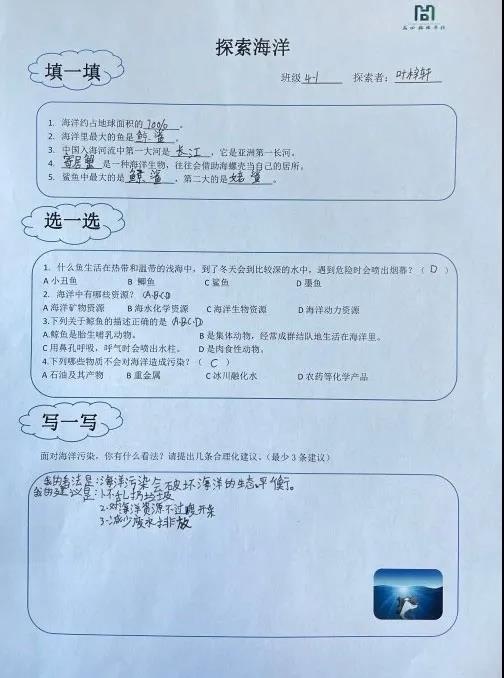 探索海洋
填一填
班级 4-1 探索者：叶梓轩
1. 海洋约占地球面积的 70% 。
2. 海洋里最大的鱼是 鲸鲨 。
3. 中国入海河流中第一大河是 长江 ，它是亚洲第一长河。
4. 寄居蟹 是一种海洋生物，往往会借助海螺壳当自己的居所。
5. 鲨鱼中最大的是 鲸鲨 ，第二大的是 姥鲨 。
选一选
1. 什么鱼生活在热带和温带的浅海中，到了冬天会到比较深的水中，遇到危险时会喷出烟幕？（ D ）
A 小丑鱼 B 鲫鱼 C 鲨鱼 D 墨鱼
2. 海洋中有哪些资源？（A·B·C·D）
A 海洋矿物资源 B 海水化学资源 C 海洋生物资源 D 海洋动力资源
3.下列关于鲸鱼的描述正确的是（A·B·C·D）
A.鲸鱼是胎生哺乳动物。 B 是集体动物，经常成群结队地生活在海洋里。
C 用鼻孔呼吸，呼气时会喷出水柱。 D 是肉食性动物。
4.下列哪些物质不会对海洋造成污染？（ C ）
A 石油及其产物 B 重金属 C 冰川融化水 D 农药等化学产品
写一写
面对海洋污染，你有什么看法？请提出几条合理化建议。（最少 3 条建议）
我的看法是：海洋污染会破坏海洋的生态平衡。
我的建议是：1.不乱扔垃圾
2.对海洋资源不过度开采
3.减少废水排放